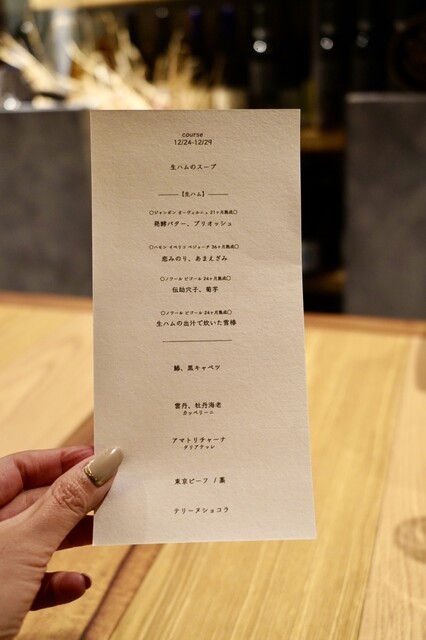 course
12/24-12/29
生ハムのスープ
【生ハム】
○ジャンボン オーヴェルニュ 21ヶ月熟成○
発酵バター、ブリオッシュ
○ハモン イベリコ ベジョータ 36ヶ月熟成○
恋みのり、あまえぎみ
○ノワール ビゴール 24ヶ月熟成○
伝助穴子、菊芋
○ノワール ビゴール 24ヶ月熟成○
生ハムの出汁で炊いた雪椿
鰆、黒キャベツ
雲丹、牡丹海老
カッペリーニ
アマトリチャーナ
タリアテッレ
東京ビーフ / 藁
テリーヌショコラ